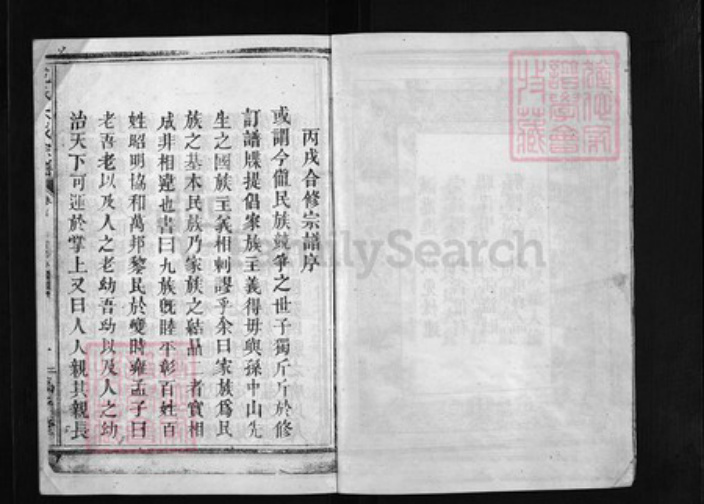 丙戌合修宗譜序
或謂今值民族競爭之世子獨斤斤於修
訂譜牒提倡家族主義得毋與孫中山先
生之國族主義相刺謬乎余曰家族爲民
族之基本民族乃家族之結晶二者實相
成非相違也書曰九族旣睦平彰百姓百
姓昭明協和萬邦黎民於變時雍孟子曰
老吾老以及人之老幼吾幼以及人之幼
治天下可運於掌上又曰人人親其親長
FamilySearch